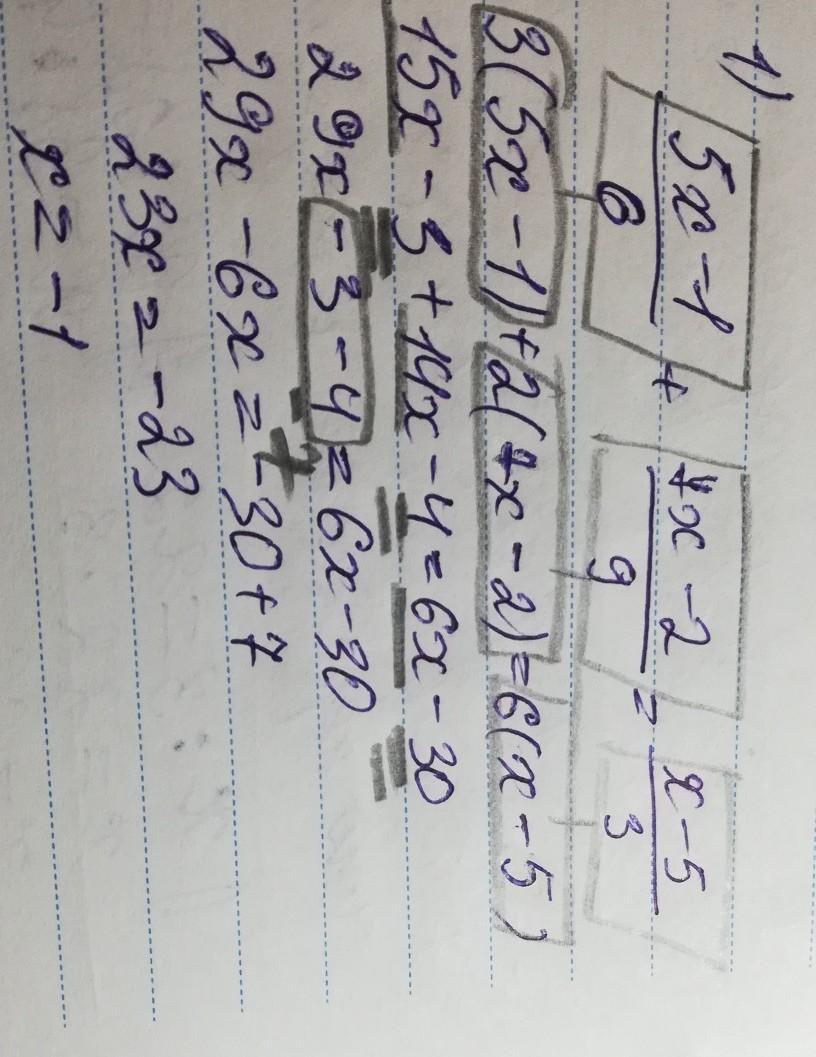 1) (5x-1)/6 + (7x-2)/9 = (x-5)/3
3(5x-1)+2(7x-2)=6(x-5)
15x-3+14x-4=6x-30
29x-3-4=6x-30
-7
29x-6x=-30+7
23x=-23
x=-1